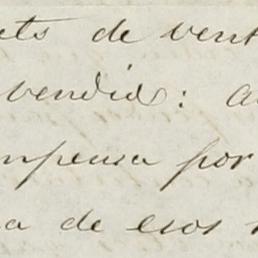 ets de vent
vendia: a
mpensa por
a de esos